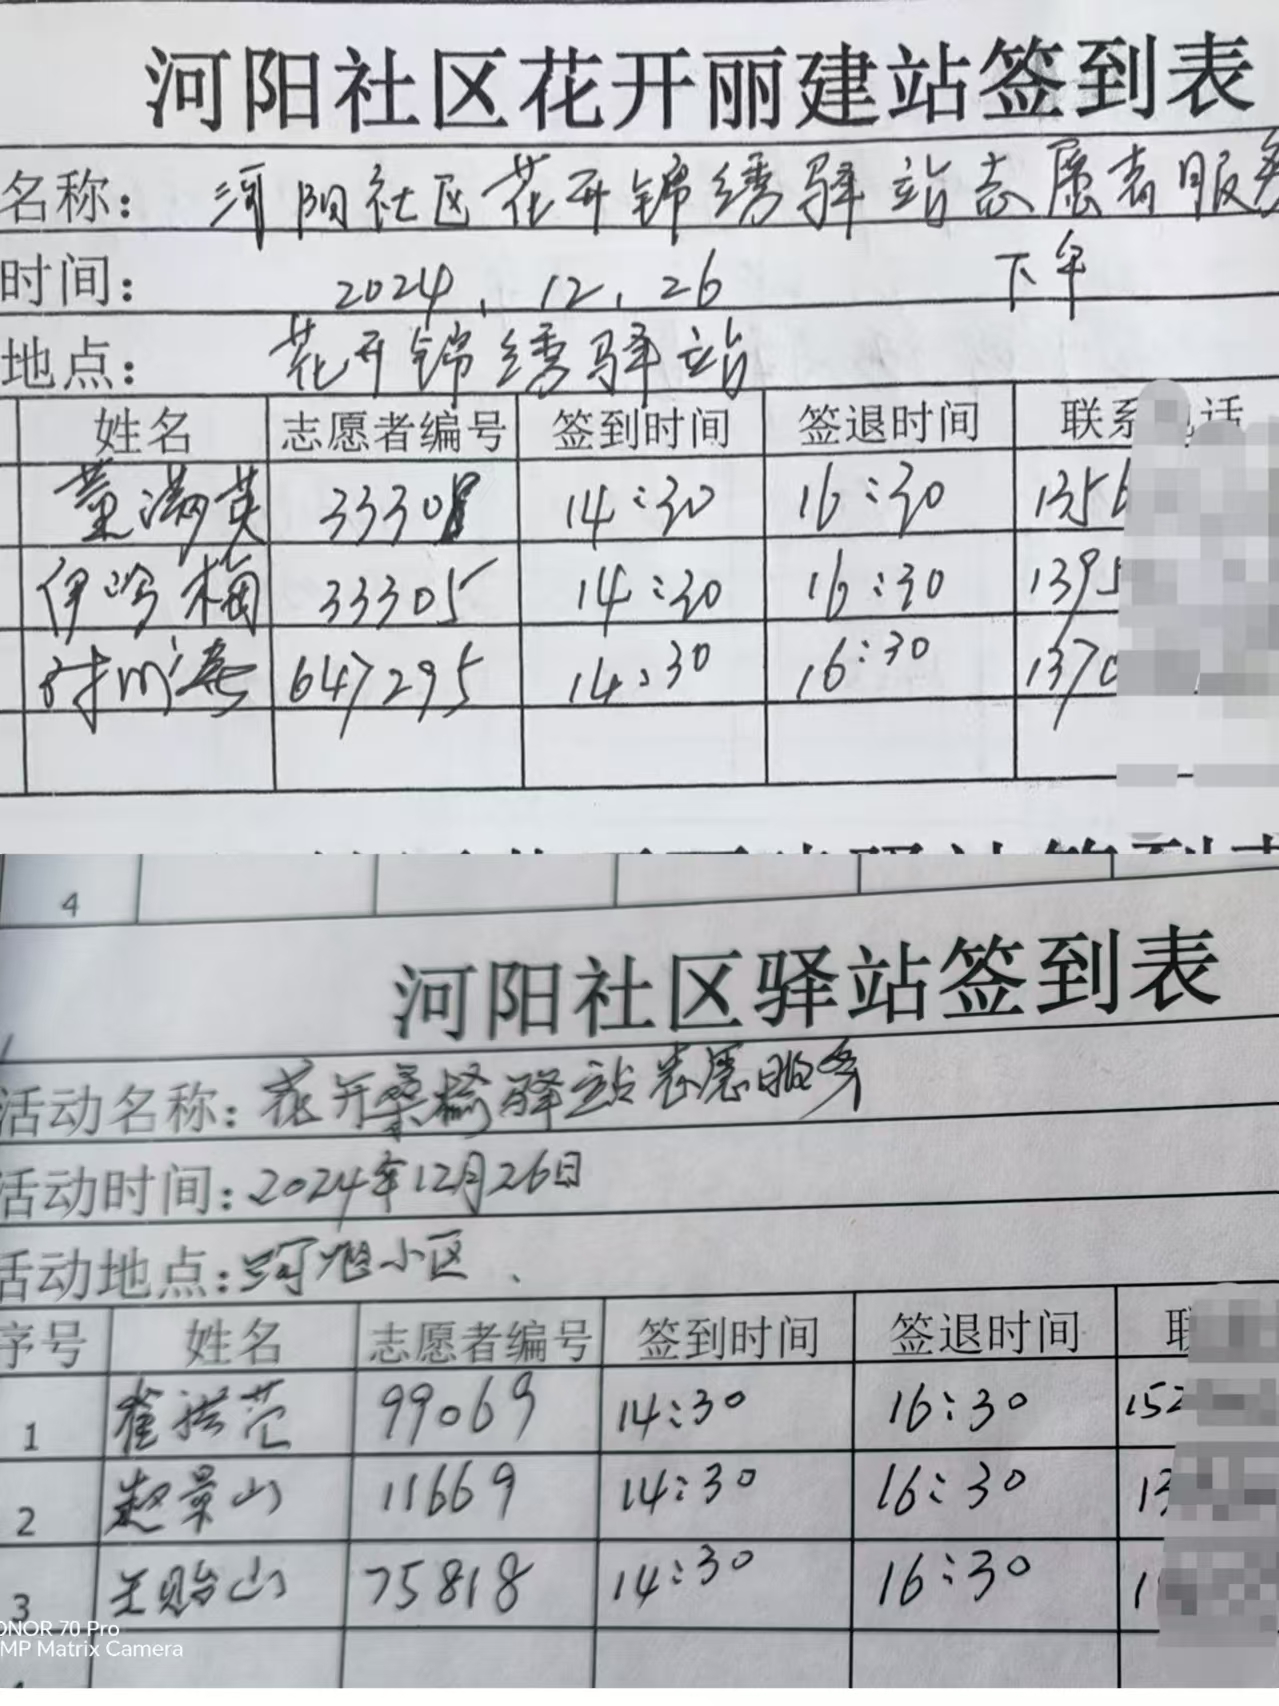 河阳社区花开丽建站签到表
名称: 河阳社区花开锦绣驿站志愿者服务
时间: 2024.12.26 下午
地点: 花开锦绣驿站
姓名 志愿者编号 签到时间 签退时间 联系 话
董满英 33308 14:30 16:30 1356
伊冷梅 33305 14:30 16:30 1395
647295 14:30 16:30 1370
4
河阳社区驿站签到表
活动名称: 花开桑榆驿站志愿服务
活动时间: 2024年12月26日
活动地点: 小区
序号 姓名 志愿者编号 签到时间 签退时间 联
1 崔洪范 99069 14:30 16:30 152
2 赵景山 11669 14:30 16:30 13
3 王贻山 75818 14:30 16:30 1
HONOR 70 Pro
MP Matrix Camera